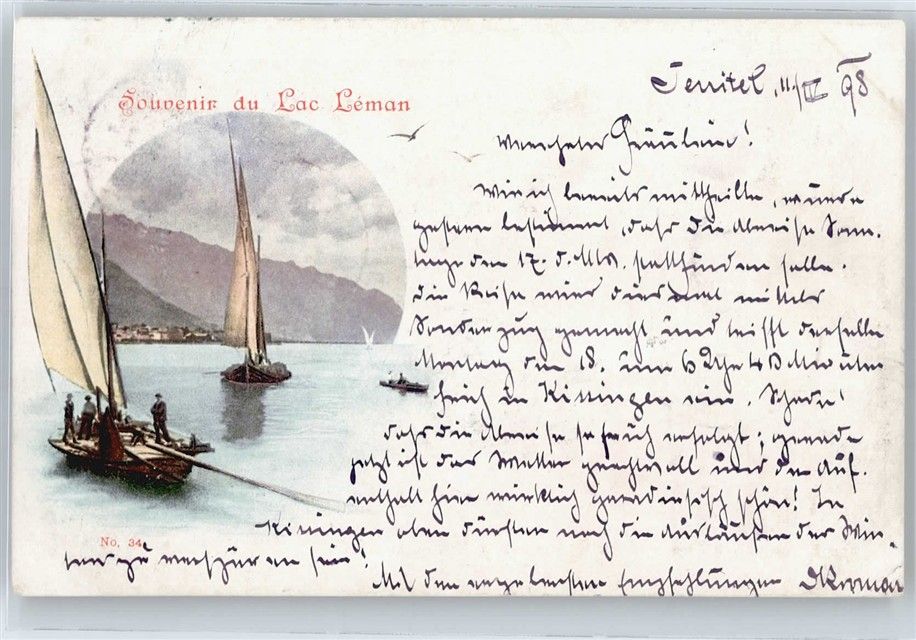 Souvenir du Lac Léman
Territet, 11./IV 98
Verehrtes Fräulein!
Wie ich bereits mittheilte, wurde
gestern bestimmt, daß die Abreise Sonn-
tags den 17. d. Mts. stattfinden solle.
Die Reise wird diesmal mittels
Sonderzug gemacht und trifft derselbe
Montag den 18. um 6 Uhr 43 Minuten
früh in Kissingen ein. Schade!
daß die Abreise so früh erfolgt; gerade
jetzt ist das Wetter prachtvoll und der Auf-
enthalt hier wirklich paradiesisch schön! In
Kissingen aber dürften noch die Ausläufer des Win-
ters zu verspüren sein!
Mit den ergebensten Empfehlungen
No. 34